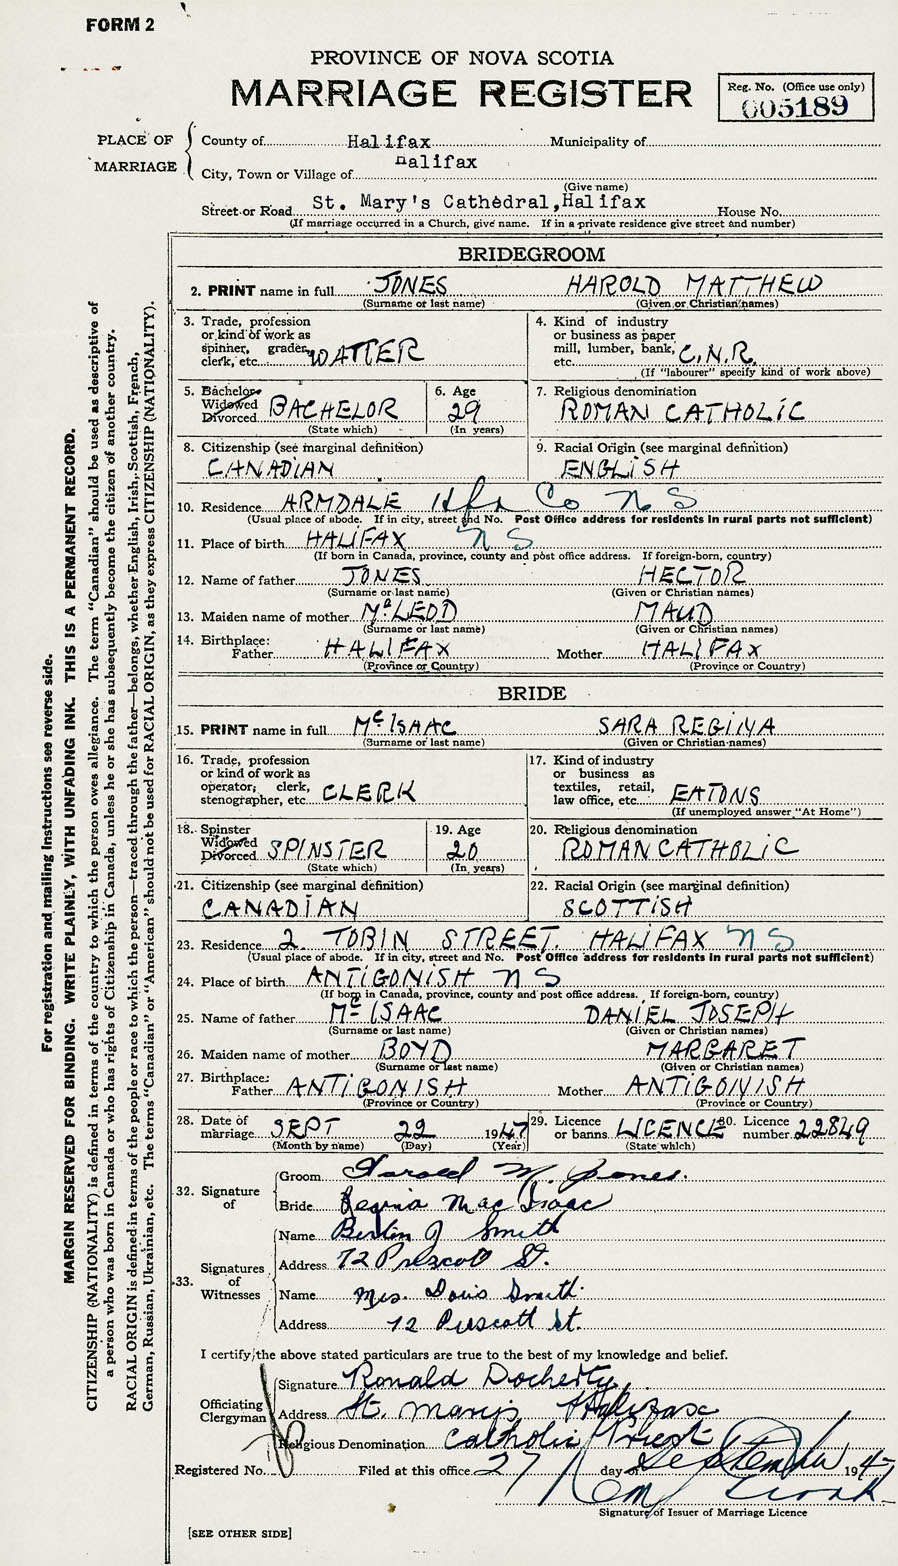 FORM 2
PROVINCE OF NOVA SCOTIA
MARRIAGE REGISTER
Reg. No. (Office use only)
005189
PLACE OF MARRIAGE
County of Halifax Municipality of
City, Town or Village of Halifax
(Give name)
Street or Road St. Mary's Cathedral, Halifax House No.
(If marriage occurred in a Church, give name. If in a private residence give street and number)
BRIDEGROOM
2. PRINT name in full JONES HAROLD MATTHEW
(Surname or last name) (Given or Christian names)
3. Trade, profession or kind of work as spinner, grader, clerk, etc. WATTER
4. Kind of industry or business as paper mill, lumber, bank, etc. C.N.R.
(If "labourer" specify kind of work above)
5. Bachelor Widowed Divorced BACHELOR
(State which)
6. Age 29
(In years)
7. Religious denomination
ROMAN CATHOLIC
8. Citizenship (see marginal definition)
CANADIAN
9. Racial Origin (see marginal definition)
ENGLISH
10. Residence ARMDALE Hfx Co N S
(Usual place of abode. If in city, street and No. Post Office address for residents in rural parts not sufficient)
11. Place of birth HALIFAX N S
(If born in Canada, province, county and post office address. If foreign-born, country)
12. Name of father JONES HECTOR
(Surname or last name) (Given or Christian names)
13. Maiden name of mother McLEOD MAUD
(Surname or last name) (Given or Christian names)
14. Birthplace:
Father HALIFAX Mother HALIFAX
(Province or Country) (Province or Country)
BRIDE
15. PRINT name in full McISAAC SARA REGINA
(Surname or last name) (Given or Christian names)
16. Trade, profession or kind of work as operator, clerk, stenographer, etc. CLERK
17. Kind of industry or business as textiles, retail, law office, etc. EATONS
(If unemployed answer "At Home")
18. Spinster Widowed Divorced SPINSTER
(State which)
19. Age 20
(In years)
20. Religious denomination
ROMAN CATHOLIC
21. Citizenship (see marginal definition)
CANADIAN
22. Racial Origin (see marginal definition)
SCOTTISH
23. Residence 2 TOBIN STREET. HALIFAX N S
(Usual place of abode. If in city, street and No. Post Office address for residents in rural parts not sufficient)
24. Place of birth ANTIGONISH N S
(If born in Canada, province, county and post office address. If foreign-born, country)
25. Name of father McISAAC DANIEL JOSEPH
(Surname or last name) (Given or Christian names)
26. Maiden name of mother BOYD MARGARET
(Surname or last name) (Given or Christian names)
27. Birthplace:
Father ANTIGONISH Mother ANTIGONISH
(Province or Country) (Province or Country)
28. Date of marriage SEPT 22 1947
(Month by name) (Day) (Year)
29. Licence or banns LICENCE
(State which)
30. Licence number 22849
32. Signature of
Groom Harold M. Jones.
Bride Regina MacIsaac
33. Signatures of Witnesses
Name J Smith
Address 72 Prescott St.
Name Mrs. Doris Smith
Address 72 Prescott St.
I certify the above stated particulars are true to the best of my knowledge and belief.
Officiating Clergyman
Signature Ronald Docherty
Address St. Marys Halifax
Religious Denomination Catholic Priest
Registered No. Filed at this office 27 day of September 1947
Signature of Issuer of Marriage Licence
[SEE OTHER SIDE]
For registration and mailing instructions see reverse side.
MARGIN RESERVED FOR BINDING. WRITE PLAINLY, WITH UNFADING INK. THIS IS A PERMANENT RECORD.
CITIZENSHIP (NATIONALITY) is defined in terms of the country to which the person owes allegiance. The term "Canadian" should be used as descriptive of
a person who was born in Canada or who has rights of Citizenship in Canada, unless he or she has subsequently become the citizen of another country.
RACIAL ORIGIN is defined in terms of the people or race to which the person—traced through the father—belongs, whether English, Irish, Scottish, French,
German, Russian, Ukrainian, etc. The terms "Canadian" or "American" should not be used for RACIAL ORIGIN, as they express CITIZENSHIP (NATIONALITY).